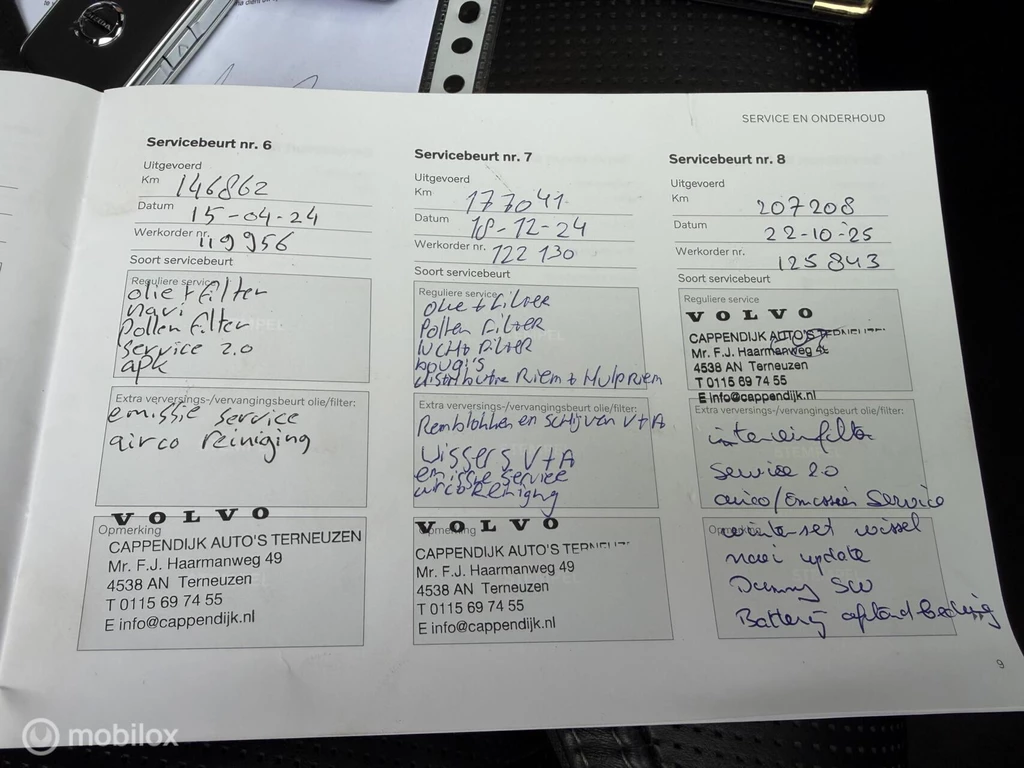 SERVICE EN ONDERHOUD
Servicebeurt nr. 6
Uitgevoerd
Km 146862
Datum 15-04-24
Werkorder nr. 119956
Soort servicebeurt
Reguliere service
olie + filter
navi
pollen filter
service 2.0
apk
Extra verversings-/vervangingsbeurt olie/filter:
emissie service
airco reiniging
Opmerking
VOLVO
CAPPENDIJK AUTO'S TERNEUZEN
Mr. F.J. Haarmanweg 49
4538 AN Terneuzen
T 0115 69 74 55
E info@cappendijk.nl
Servicebeurt nr. 7
Uitgevoerd
Km 177041
Datum 18-12-24
Werkorder nr. 122130
Soort servicebeurt
Reguliere service
olie + filter
Pollen filter
lucht filter
bougi's
distributie Riem + HulpRiem
Extra verversings-/vervangingsbeurt olie/filter:
Remblokken en schijven V+A
Wissers V+A
emissie service
airco Reiniging
Opmerking
VOLVO
CAPPENDIJK AUTO'S TERNEUZEN
Mr. F.J. Haarmanweg 49
4538 AN Terneuzen
T 0115 69 74 55
E info@cappendijk.nl
Servicebeurt nr. 8
Uitgevoerd
Km 207208
Datum 22-10-25
Werkorder nr. 125843
Soort servicebeurt
Reguliere service
VOLVO
CAPPENDIJK AUTO'S TERNEUZEN
Mr. F.J. Haarmanweg 49
4538 AN Terneuzen
T 0115 69 74 55
E info@cappendijk.nl
Extra verversings-/vervangingsbeurt olie/filter:
interieurfilter
Service 2.0
airco/Emissie Service
Opmerking
winterset wissel
navi update
SW
Batterij afstandbediening
9
mobilox